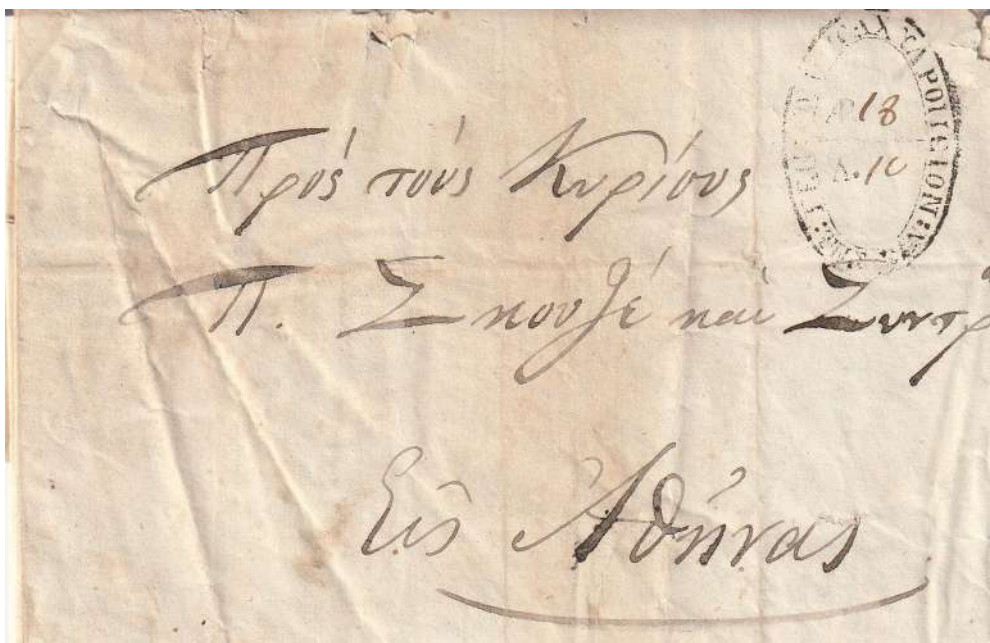 18
10
Πρός τούς Κυρίους
Π. Σκουζέ καὶ Συντρ
Εἰς Ἀθήνας